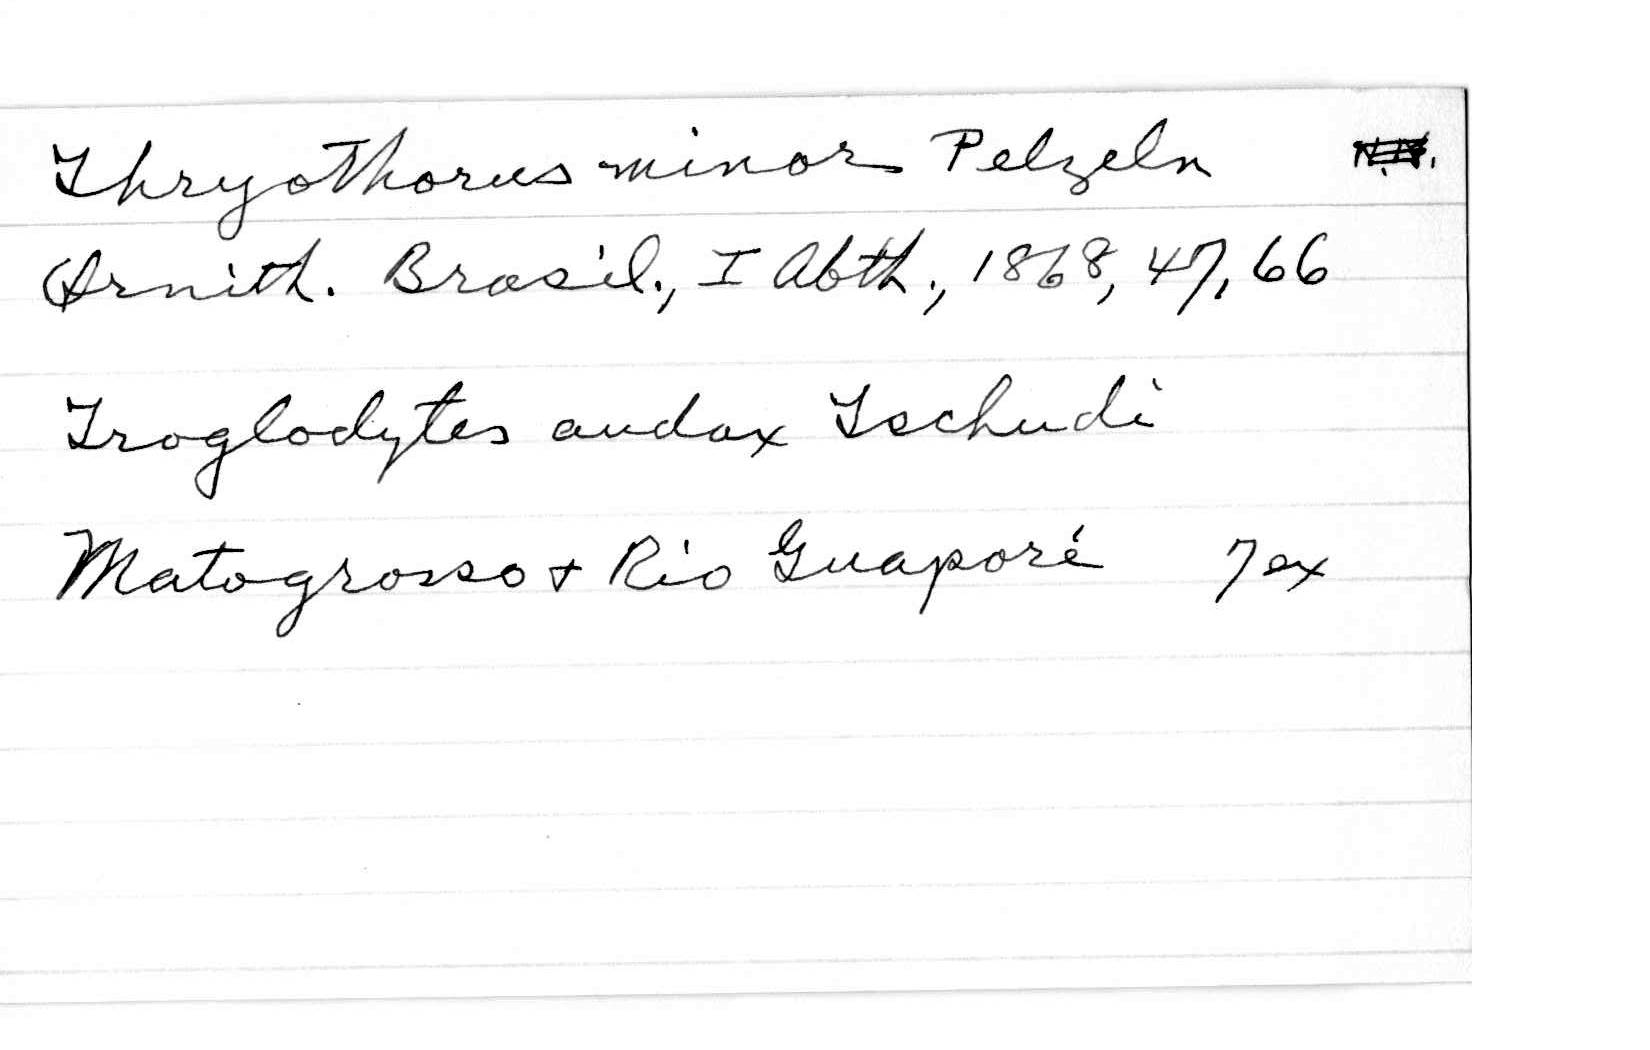 Thryothorus minor Pelzeln
Ornith. Brasil., I Abth., 1868, 47, 66
Troglodytes audax Tschudi
Matogrosso + Rio Guaporé 7 ex